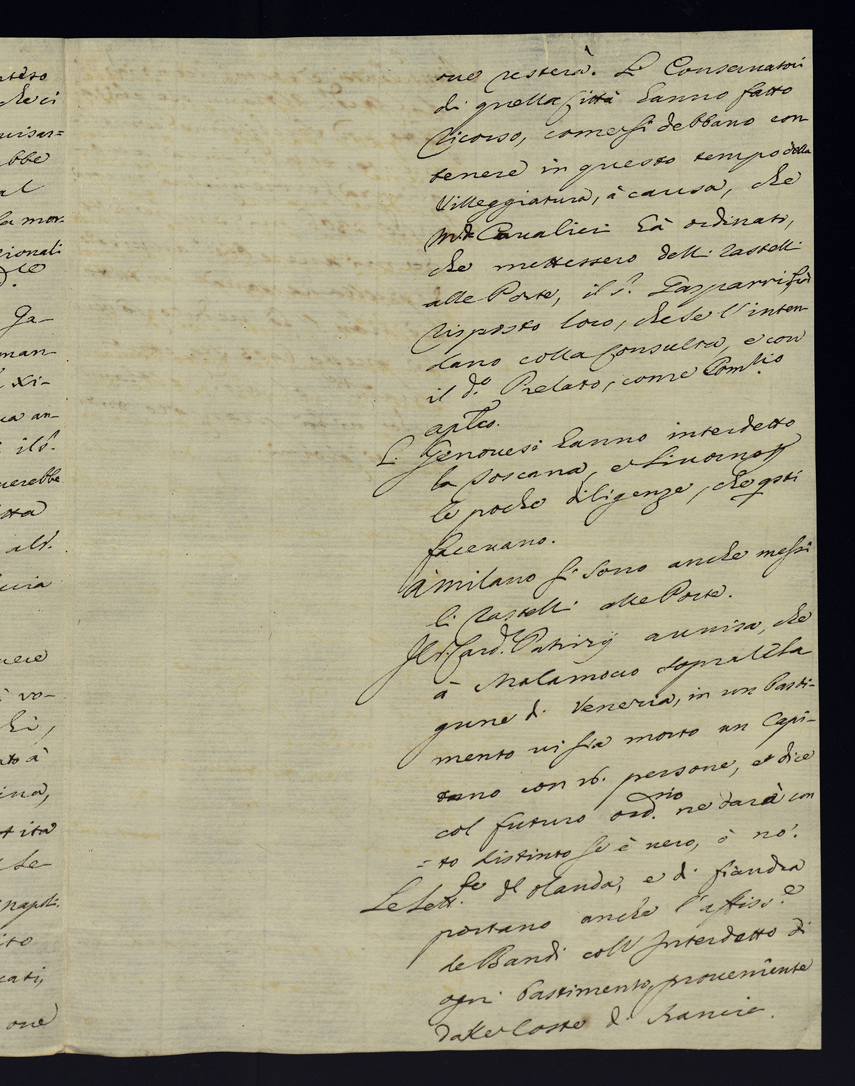 ntero
che ci
uisar=
ebbe
al
la mor
zionali
Ga-
man-
Xi-
ua an-
il s.r
uerebbe
atta
als.
ucia
uere
à vo-
chi,
ato à
ina,
tita
Le-
napli.
ito
cati
oue
oue resterà. Li Conseruatori
di quella Città hanno fatto
ricorso, come si debbano con
tenere in questo tempo della
Villeggiatura, à causa, che
Caualieri hà ordinati,
che mettessero delli rastelli
alle Porte, il s.r Gasparri gli hà
risposto loro, che se l'inten
dano colla Consulta, e con
il d.o Prelato, come Com.rio
ap.lico.
Li Genouesi hanno interdetto
la Toscana, e Liuorno p
le poche diligenze, che q.sti
faceuano.
à Milano si sono anche messi
li rastelli alle Porte.
Il s.r Card. Patrizij auuisa, che
à Malamocco sopra le La
gune di Venezia, in un basti-
mento ui sia morto un Capi-
tano con 16. persone, et dice
col futuro ord.rio ne darà con
=to distinto se è uero, ò nò.
Le lett.re di Olanda, e di fiandra
portano anche l'affiss.e
de Bandi coll'Interdetto di
ogni bastimento proueniente
dalle Coste di Francia.